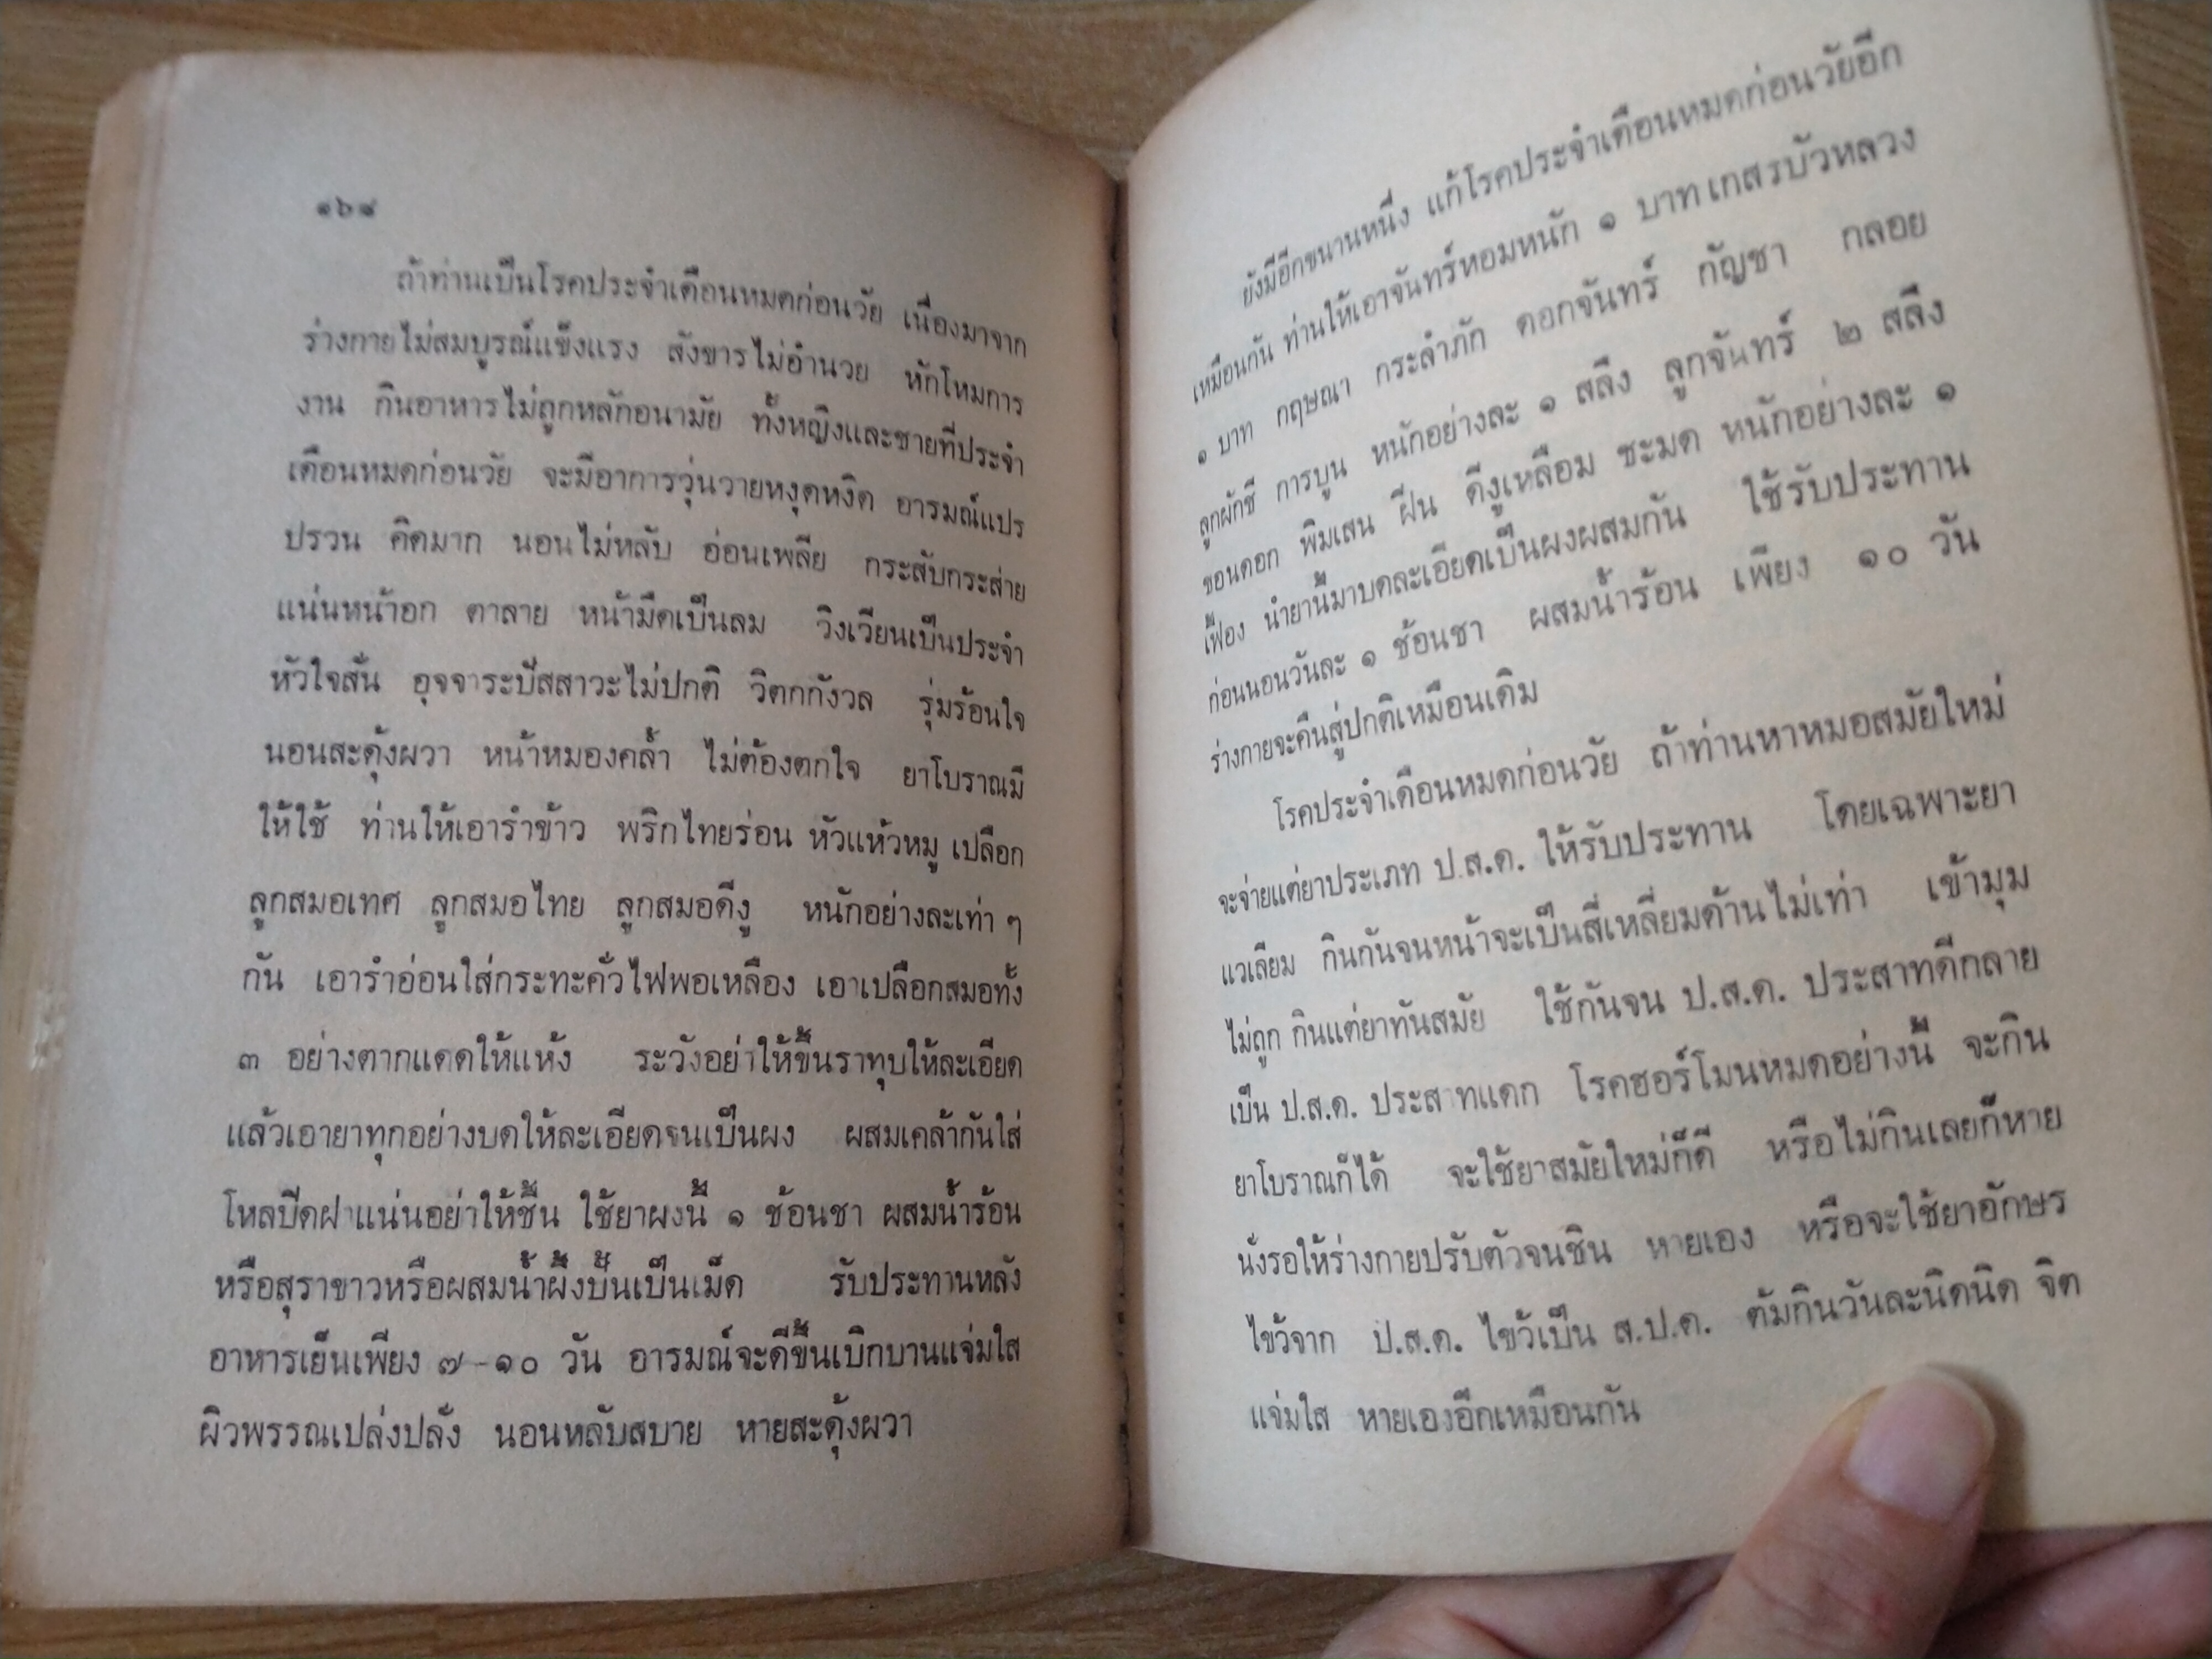 ๑๖๘
ถ้าท่านเป็นโรคประจำเดือนหมดก่อนวัย เนื่องมาจาก
ร่างกายไม่สมบูรณ์แข็งแรง สังขารไม่อำนวย หักโหมการ
งาน กินอาหารไม่ถูกหลักอนามัย ทั้งหญิงและชายที่ประจำ
เดือนหมดก่อนวัย จะมีอาการวุ่นวายหงุดหงิด อารมณ์แปร
ปรวน คิดมาก นอนไม่หลับ อ่อนเพลีย กระสับกระส่าย
แน่นหน้าอก ตาลาย หน้ามืดเป็นลม วิงเวียนเป็นประจำ
หัวใจสั่น อุจจาระปัสสาวะไม่ปกติ วิตกกังวล รุ่มร้อนใจ
นอนสะดุ้งผวา หน้าหมองคล้ำ ไม่ต้องตกใจ ยาโบราณมี
ให้ใช้ ท่านให้เอารำข้าว พริกไทยร่อน หัวแห้วหมู เปลือก
ลูกสมอเทศ ลูกสมอไทย ลูกสมอดีงู หนักอย่างละเท่า ๆ
กัน เอารำอ่อนใส่กระทะคั่วไฟพอเหลือง เอาเปลือกสมอทั้ง
๓ อย่างตากแดดให้แห้ง ระวังอย่าให้ขึ้นราทุบให้ละเอียด
แล้วเอายาทุกอย่างบดให้ละเอียดจนเป็นผง ผสมเคล้ากันใส่
โหลปิดฝาแน่นอย่าให้ชื้น ใช้ยาผงนี้ ๑ ช้อนชา ผสมน้ำร้อน
หรือสุราขาวหรือผสมน้ำผึ้งปั้นเป็นเม็ด รับประทานหลัง
อาหารเย็นเพียง ๗-๑๐ วัน อารมณ์จะดีขึ้นเบิกบานแจ่มใส
ผิวพรรณเปล่งปลั่ง นอนหลับสบาย หายสะดุ้งผวา
ยังมีอีกขนานหนึ่ง แก้โรคประจำเดือนหมดก่อนวัยอีก
เหมือนกัน ท่านให้เอาจันทร์หอมหนัก ๑ บาท เกสรบัวหลวง
๑ บาท กฤษณา กระลำภัก ดอกจันทร์ กัญชา กลอย
ลูกผักชี การบูน หนักอย่างละ ๑ สลึง ลูกจันทร์ ๒ สลึง
ขอนดอก พิมเสน ฝีน ดีงูเหลือม ชะมด หนักอย่างละ ๑
เฟื้อง นำยานี้มาบดละเอียดเป็นผงผสมกัน ใช้รับประทาน
ก่อนนอนวันละ ๑ ช้อนชา ผสมน้ำร้อน เพียง ๑๐ วัน
ร่างกายจะคืนสู่ปกติเหมือนเดิม
โรคประจำเดือนหมดก่อนวัย ถ้าท่านหาหมอสมัยใหม่
จะจ่ายแต่ยาประเภท ป.ส.ด. ให้รับประทาน โดยเฉพาะยา
แวเลียม กินกันจนหน้าจะเป็นสี่เหลี่ยมด้านไม่เท่า เข้ามุม
ไม่ถูก กินแต่ยาทันสมัย ใช้กันจน ป.ส.ด. ประสาทดีกลาย
เป็น ป.ส.ด. ประสาทแดก โรคฮอร์โมนหมดอย่างนี้ จะกิน
ยาโบราณก็ได้ จะใช้ยาสมัยใหม่ก็ดี หรือไม่กินเลยก็หาย
นั่งรอให้ร่างกายปรับตัวจนชิน หายเอง หรือจะใช้ยาอักษร
ไขว้จาก ป.ส.ด. ไขว้เป็น ส.ป.ด. ต้มกินวันละนิดนิด จิต
แจ่มใส หายเองอีกเหมือนกัน